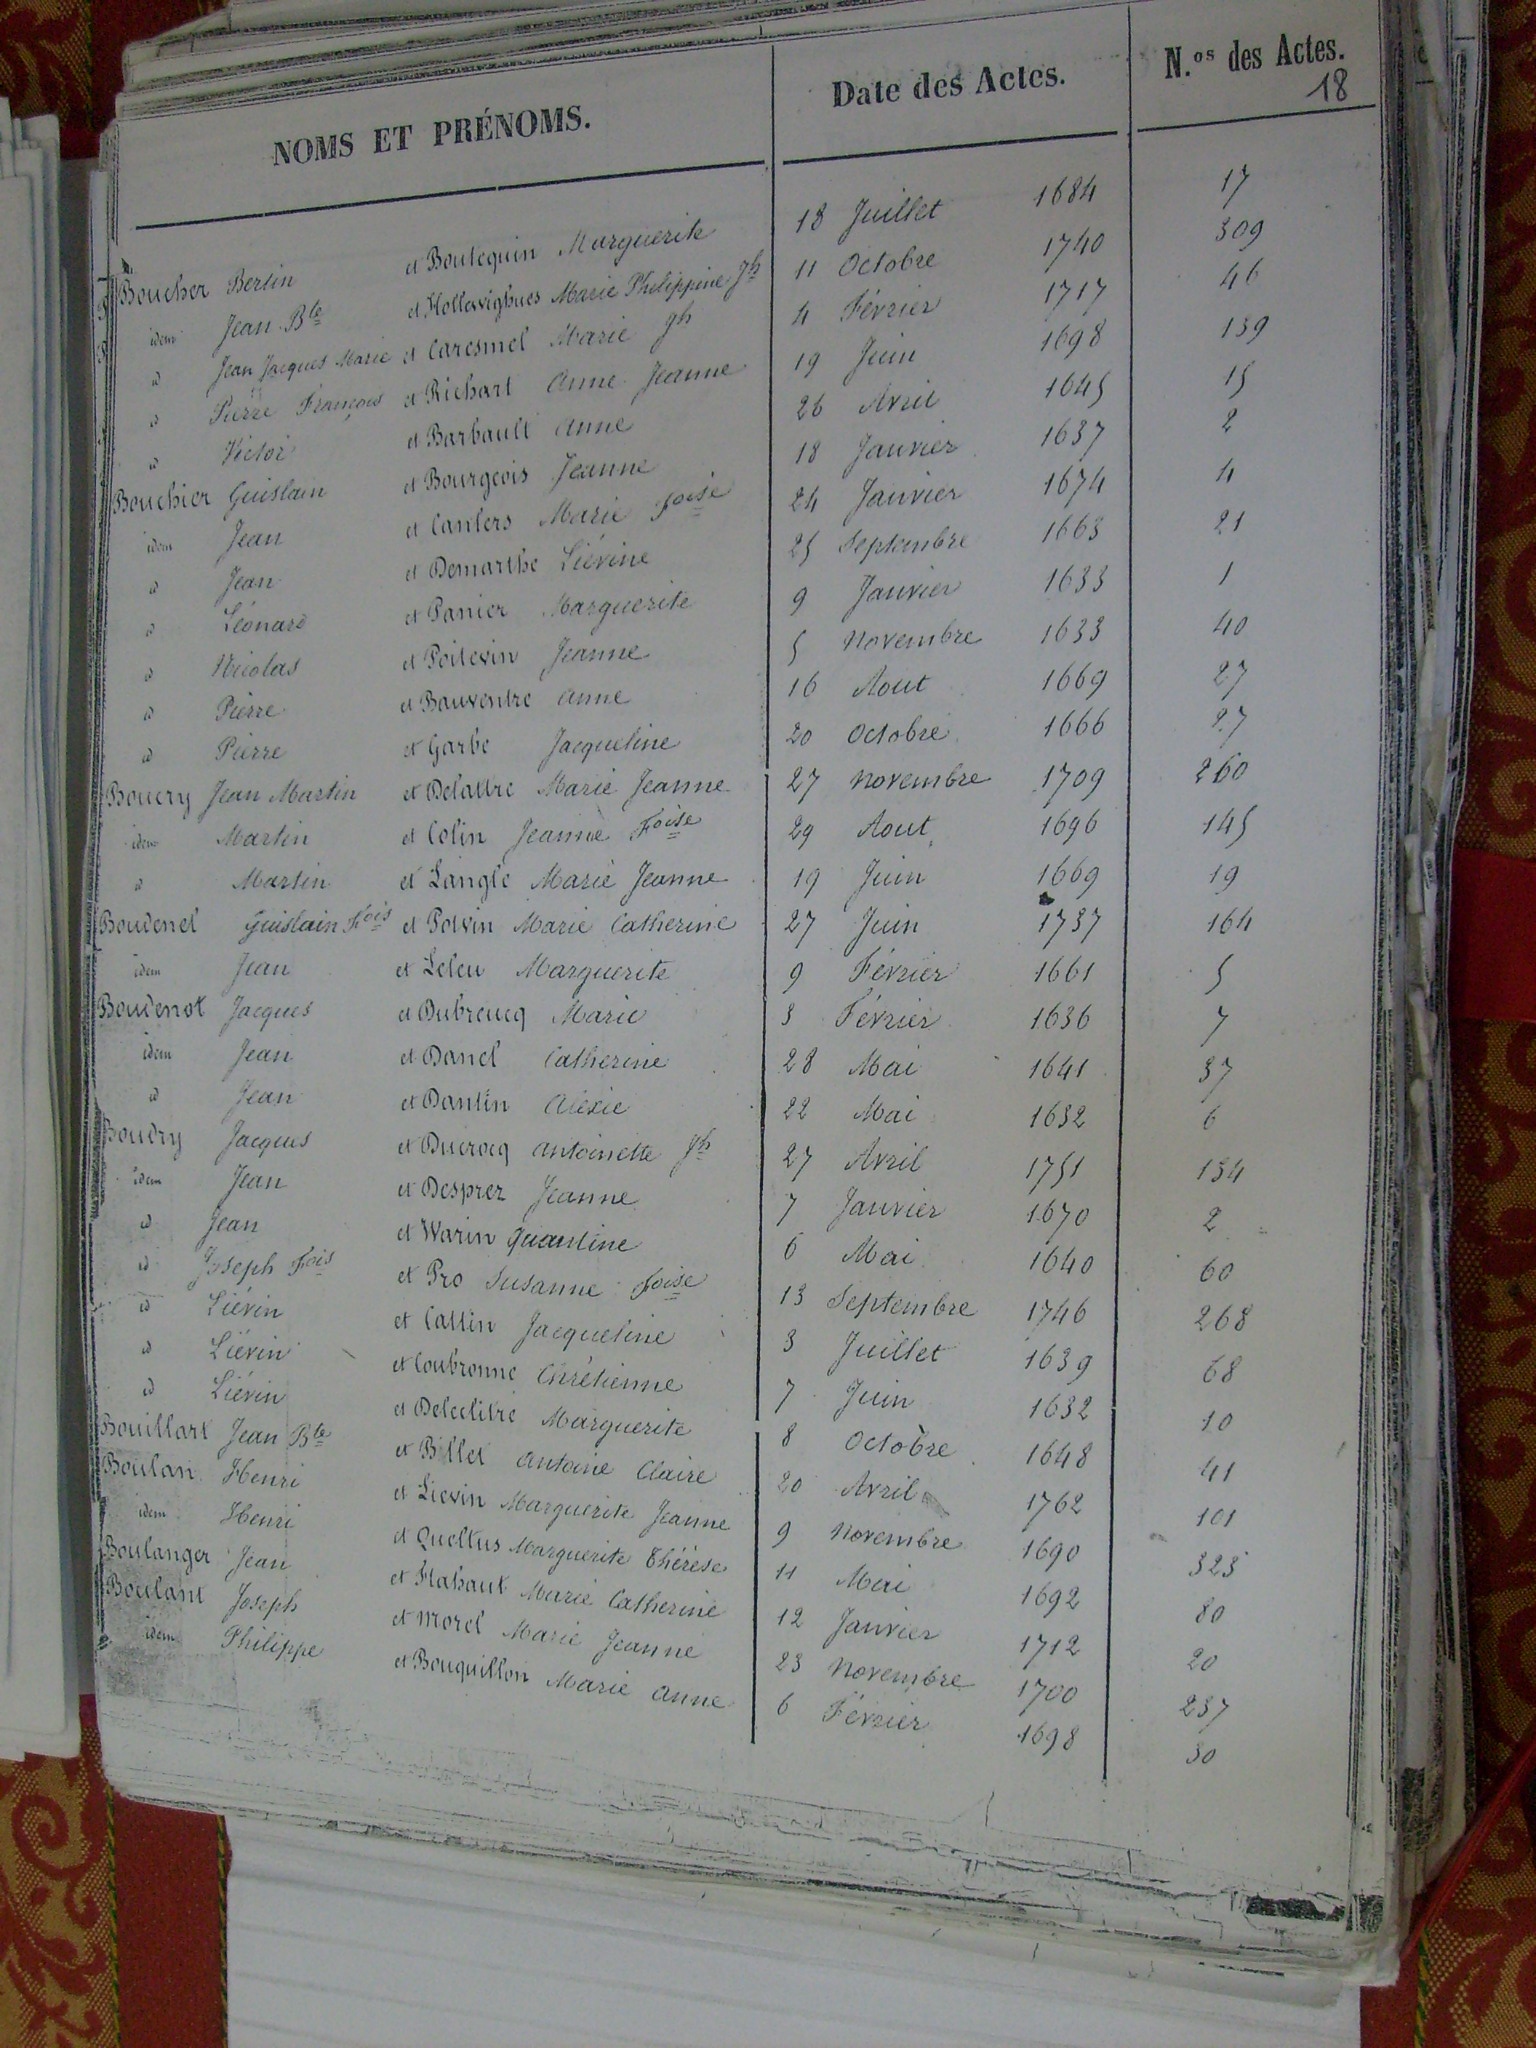 NOMS ET PRÉNOMS. Date des Actes. N.os des Actes.
18
Boucher Bertin et Boutequin Marguerite 18 Juillet 1684 17
idem Jean Bte et Hollevighues Marie Philippine Jh 11 Octobre 1740 309
id Jean Jacques Marie et Caresmel Marie Jh 4 Février 1717 46
id Pierre François et Richart Anne Jeanne 19 Juin 1698 139
id Victor et Barbault Anne 26 Avril 1645 15
Bouchier Guislain et Bourgeois Jeanne 18 Janvier 1637 2
idem Jean et Canlers Marie Foise 24 Janvier 1674 4
id Jean et Demarthe Liévine 25 Septembre 1663 21
id Léonard et Panier Marguerite 9 Janvier 1633 1
id Nicolas et Poitevin Jeanne 5 Novembre 1633 40
id Pierre et Bauventre Anne 16 Aout 1669 27
id Pierre et Garbe Jacqueline 20 Octobre 1666 27
Boucry Jean Martin et Delattre Marie Jeanne 27 Novembre 1709 260
idem Martin et Colin Jeanne Foise 29 Aout 1696 145
id Martin et Langle Marie Jeanne 19 Juin 1669 19
Boudenel Guislain Fois et Potvin Marie Catherine 27 Juin 1737 164
idem Jean et Leleu Marguerite 9 Février 1661 5
Boudenot Jacques et Dubreucq Marie 3 Février 1636 7
idem Jean et Danel Catherine 28 Mai 1641 37
id Jean et Dantin Alexie 22 Mai 1632 6
Boudry Jacques et Ducrocq Antoinette Jh 27 Avril 1751 134
idem Jean et Desprez Jeanne 7 Janvier 1670 2
id Jean et Warin Quantine 6 Mai 1640 60
id Joseph Fois et Pro Susanne Foise 13 Septembre 1746 268
id Liévin et Cattin Jacqueline 3 Juillet 1639 68
id Liévin et Coubronne Chrétienne 7 Juin 1632 10
id Liévin et Deleclitre Marguerite 8 Octobre 1648 41
Bouillart Jean Bte et Billet Antoine Claire 20 Avril 1762 101
Boulan Henri et Lievin Marguerite Jeanne 9 Novembre 1690 323
idem Henri et Queltus Marguerite Thérèse 11 Mai 1692 80
Boulanger Jean et Flahaut Marie Catherine 12 Janvier 1712 20
Boulant Joseph et Morel Marie Jeanne 23 Novembre 1700 237
idem Philippe et Bouquillon Marie Anne 6 Février 1698 30